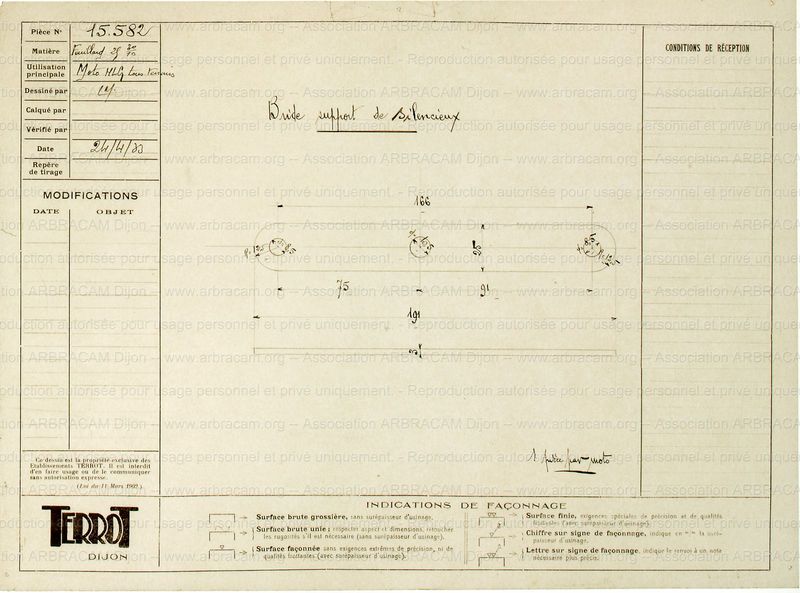 Pièce N° 15.582
Matière Feuillard
Utilisation principale Moto
Dessiné par
Calqué par
Vérifié par
Date 24/4/33
Repère de tirage
MODIFICATIONS
DATE OBJET
CONDITIONS DE RÉCEPTION
Bride support de silencieux
166
75
25
91
191
3
1 pièce par moto
Ce dessin est la propriété exclusive des
Etablissements TERROT. Il est interdit
d'en faire usage ou de le communiquer
sans autorisation expresse.
(Loi du 11 Mars 1902.)
TERROT
DIJON
INDICATIONS DE FAÇONNAGE
Surface brute grossière, sans surépaisseur d'usinage.
Surface brute unie; respecter aspect et dimensions, retoucher
les rugosités s'il est nécessaire (sans surépaisseur d'usinage).
Surface façonnée sans exigences extrêmes de précision, ni de
qualités frottantes (avec surépaisseur d'usinage).
Surface finie, exigences spéciales de précision et de qualités
frottantes (avec surépaisseur d'usinage).
Chiffre sur signe de façonnage, indique en m/m la suré-
paisseur d'usinage.
Lettre sur signe de façonnage, indique le renvoi à un note
nécessaire plus précise.
www.arbracam.org -- Association ARBRACAM Dijon -- www.arbracam.org -- Association ARBRACAM Dijon
Reproduction autorisée pour usage personnel et privé uniquement. - Reproduction autorisée pour usage personnel et privé uniquement.